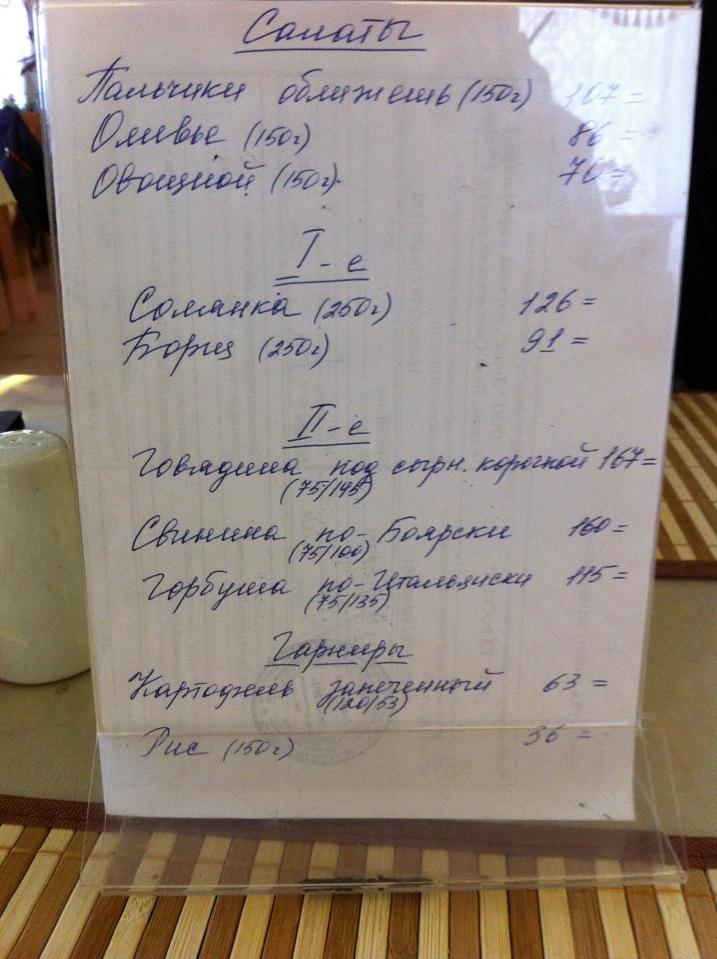 Салаты
Пальчики оближешь (150г) 107=
Оливье (150г) 86=
Овощной (150г). 70=
I-е
Солянка (250г) 126=
Борщ (250г) 91=
II-е
Говядина под сырн. корочкой 167=
(75/145)
Свинина по-Боярски 160=
(75/100)
Горбуша по-Итальянски 115=
(75/135)
Гарниры
Картофель запеченный 63=
(120/53)
Рис (150г) 36=